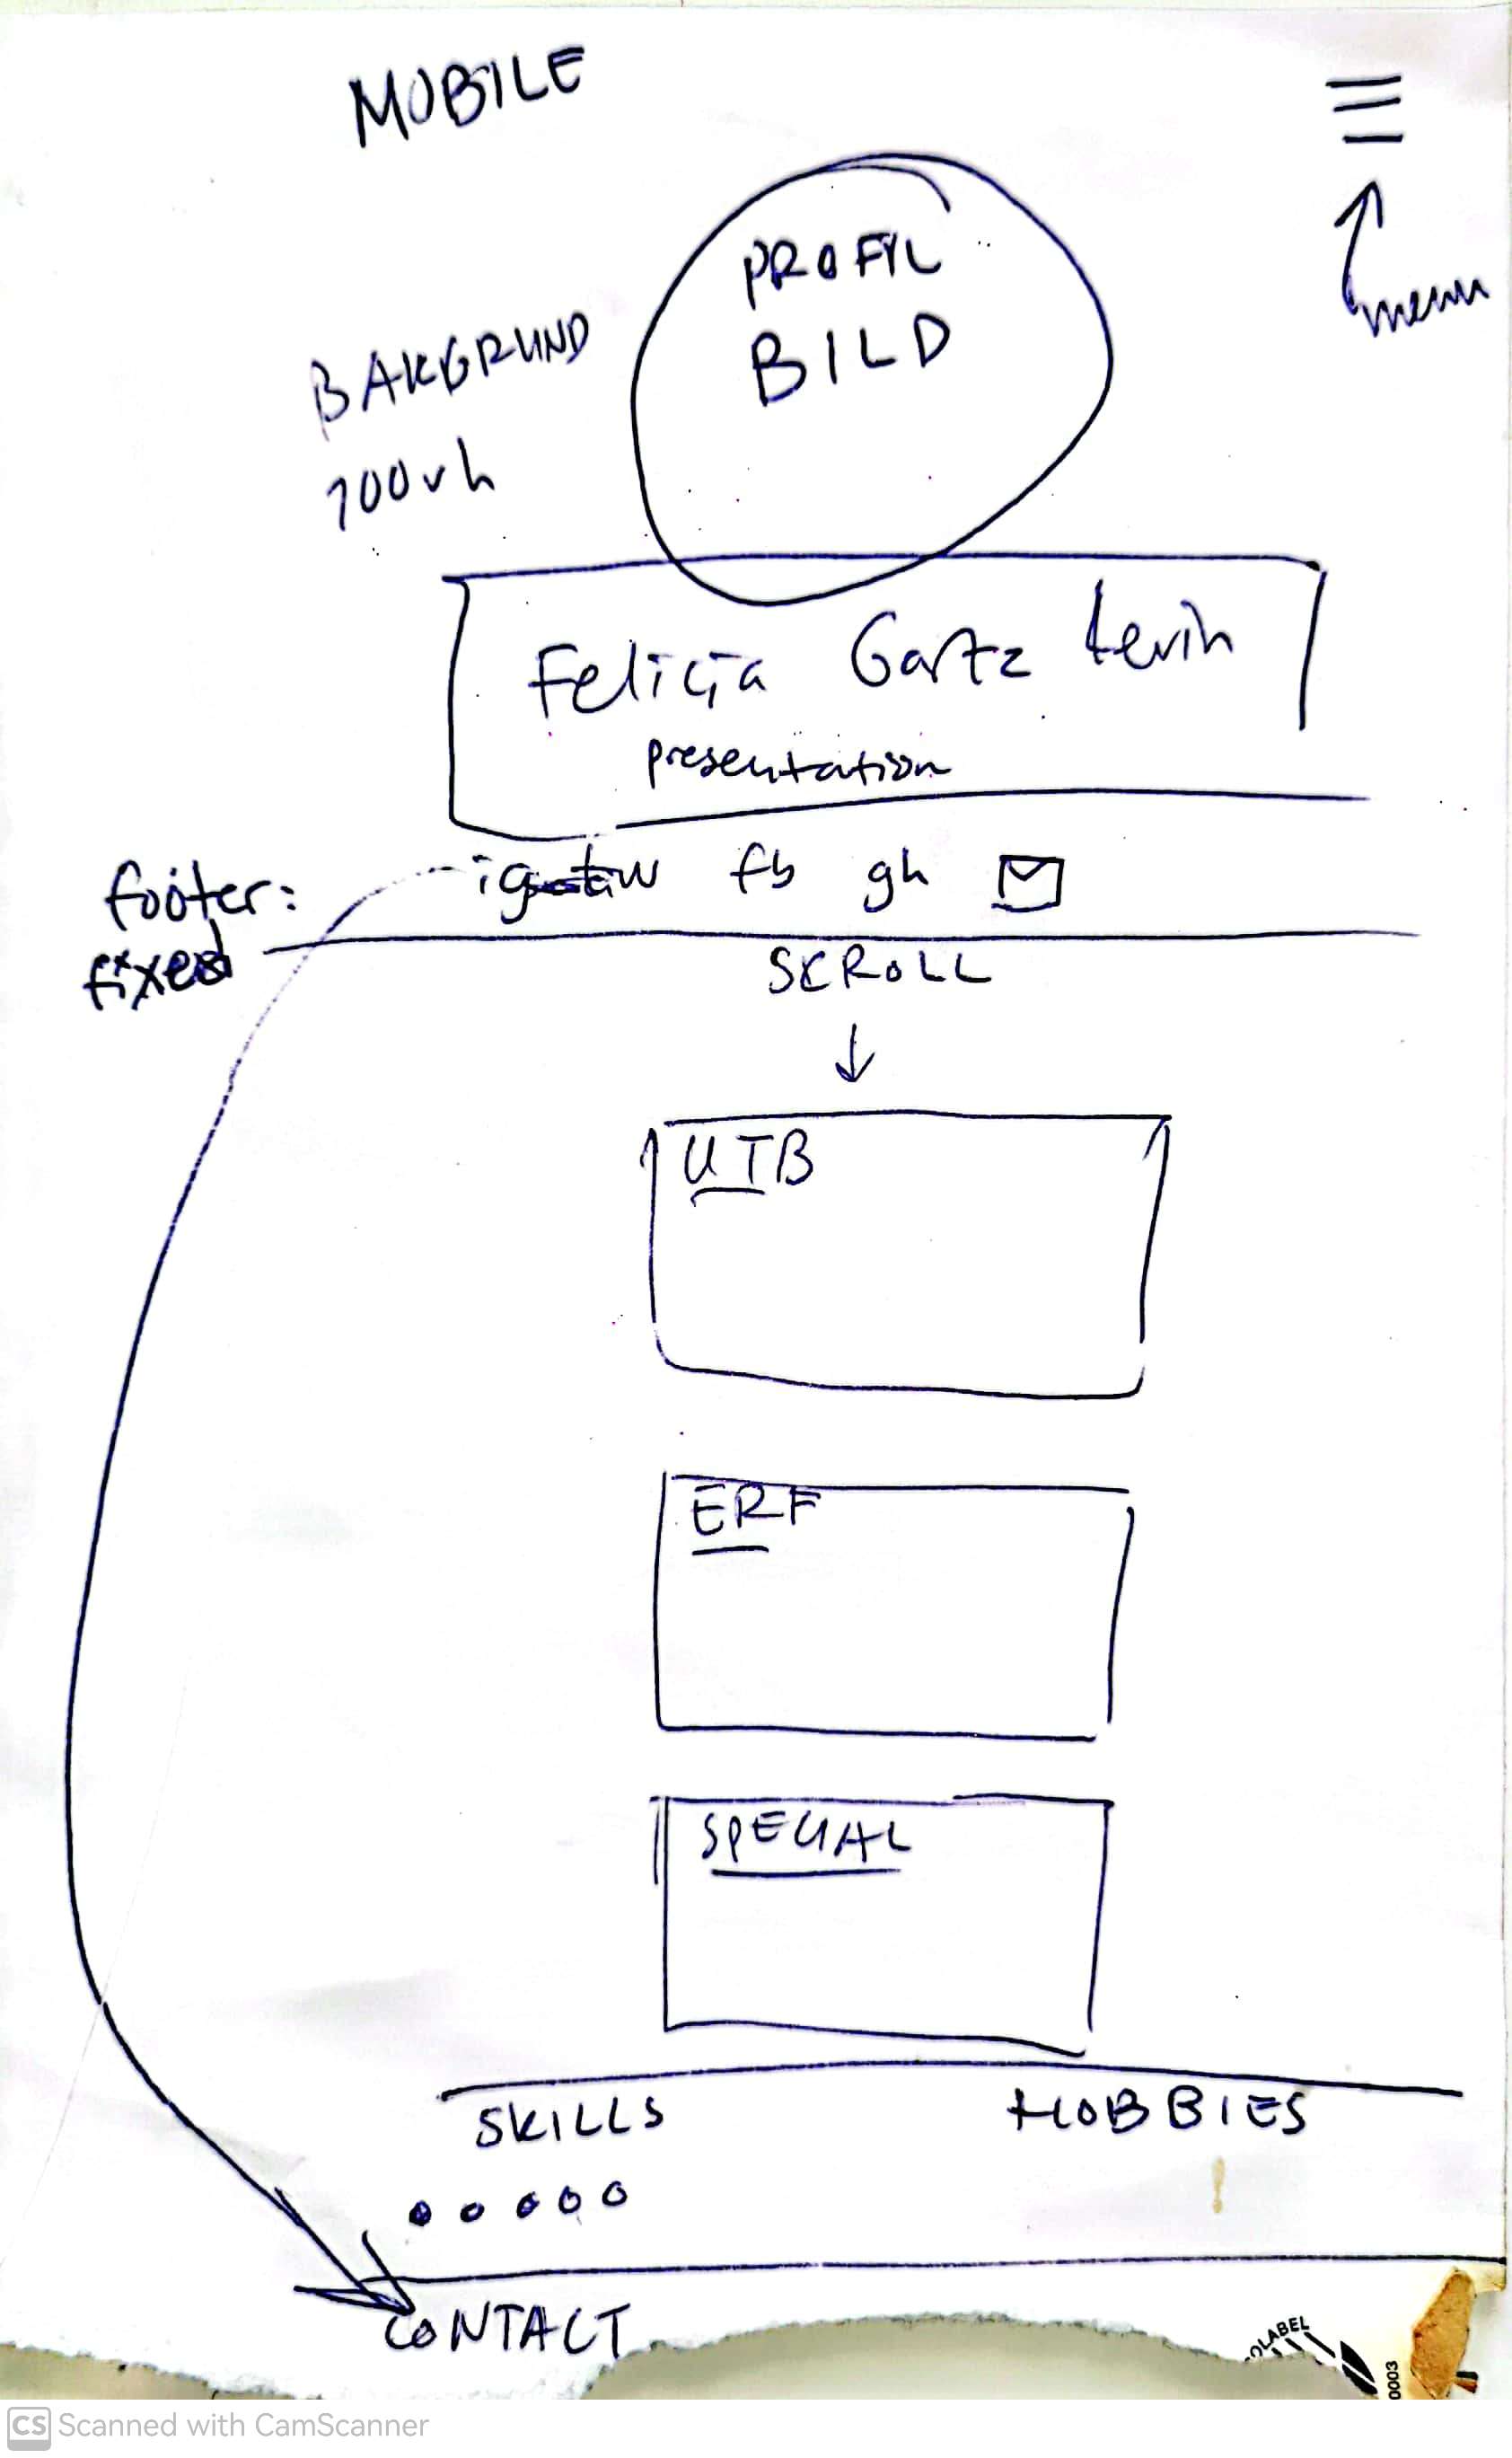 MOBILE
menu
PROFIL
BILD
BAKGRUND
100vh
Felicia Gartz Levin
presentation
footer:
fixed
ig fb gh
SCROLL
UTB
ERF
SPECIAL
SKILLS HOBBIES
CONTACT
OLABEL
0003
CS Scanned with CamScanner